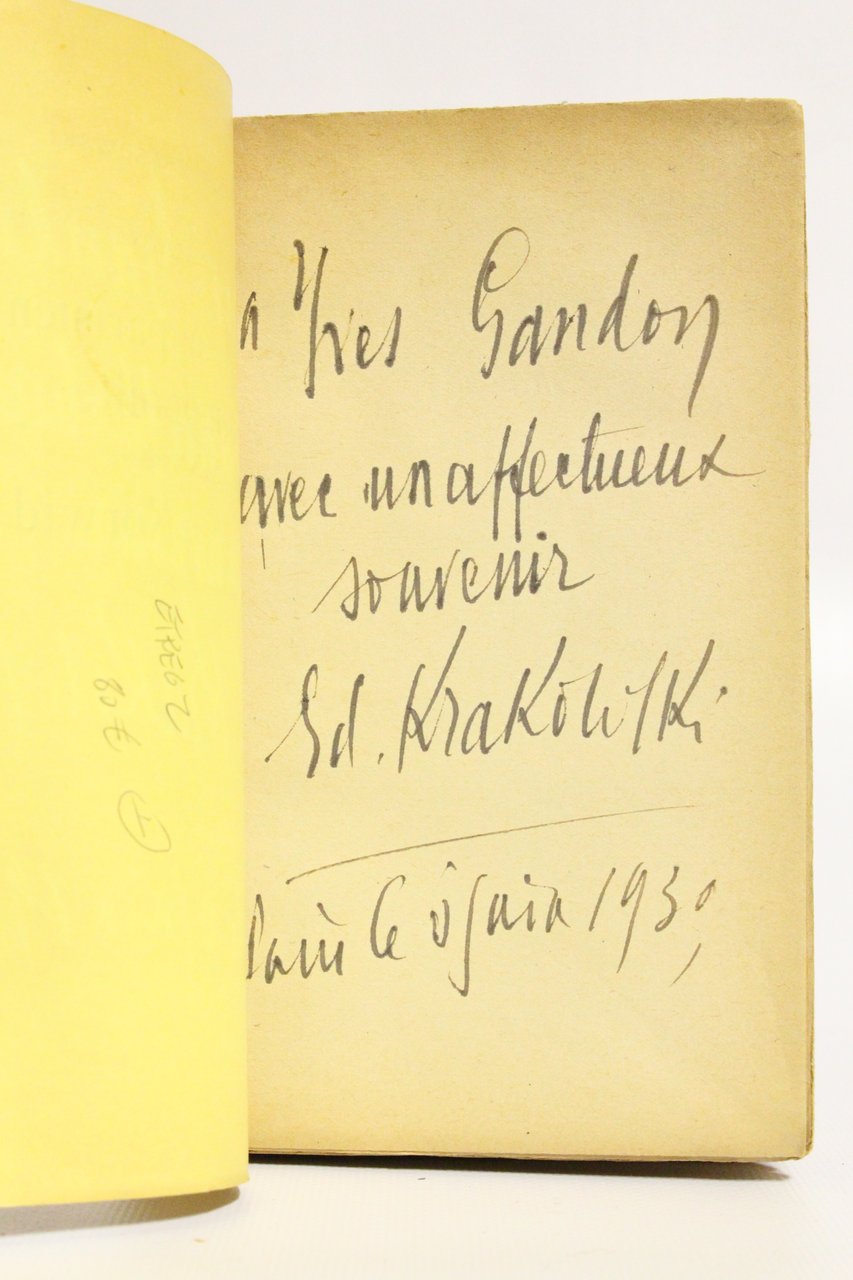 a Yves Gandon
avec un affectueux
souvenir
Ed. Krakowski
Paris le juin 193
80 €